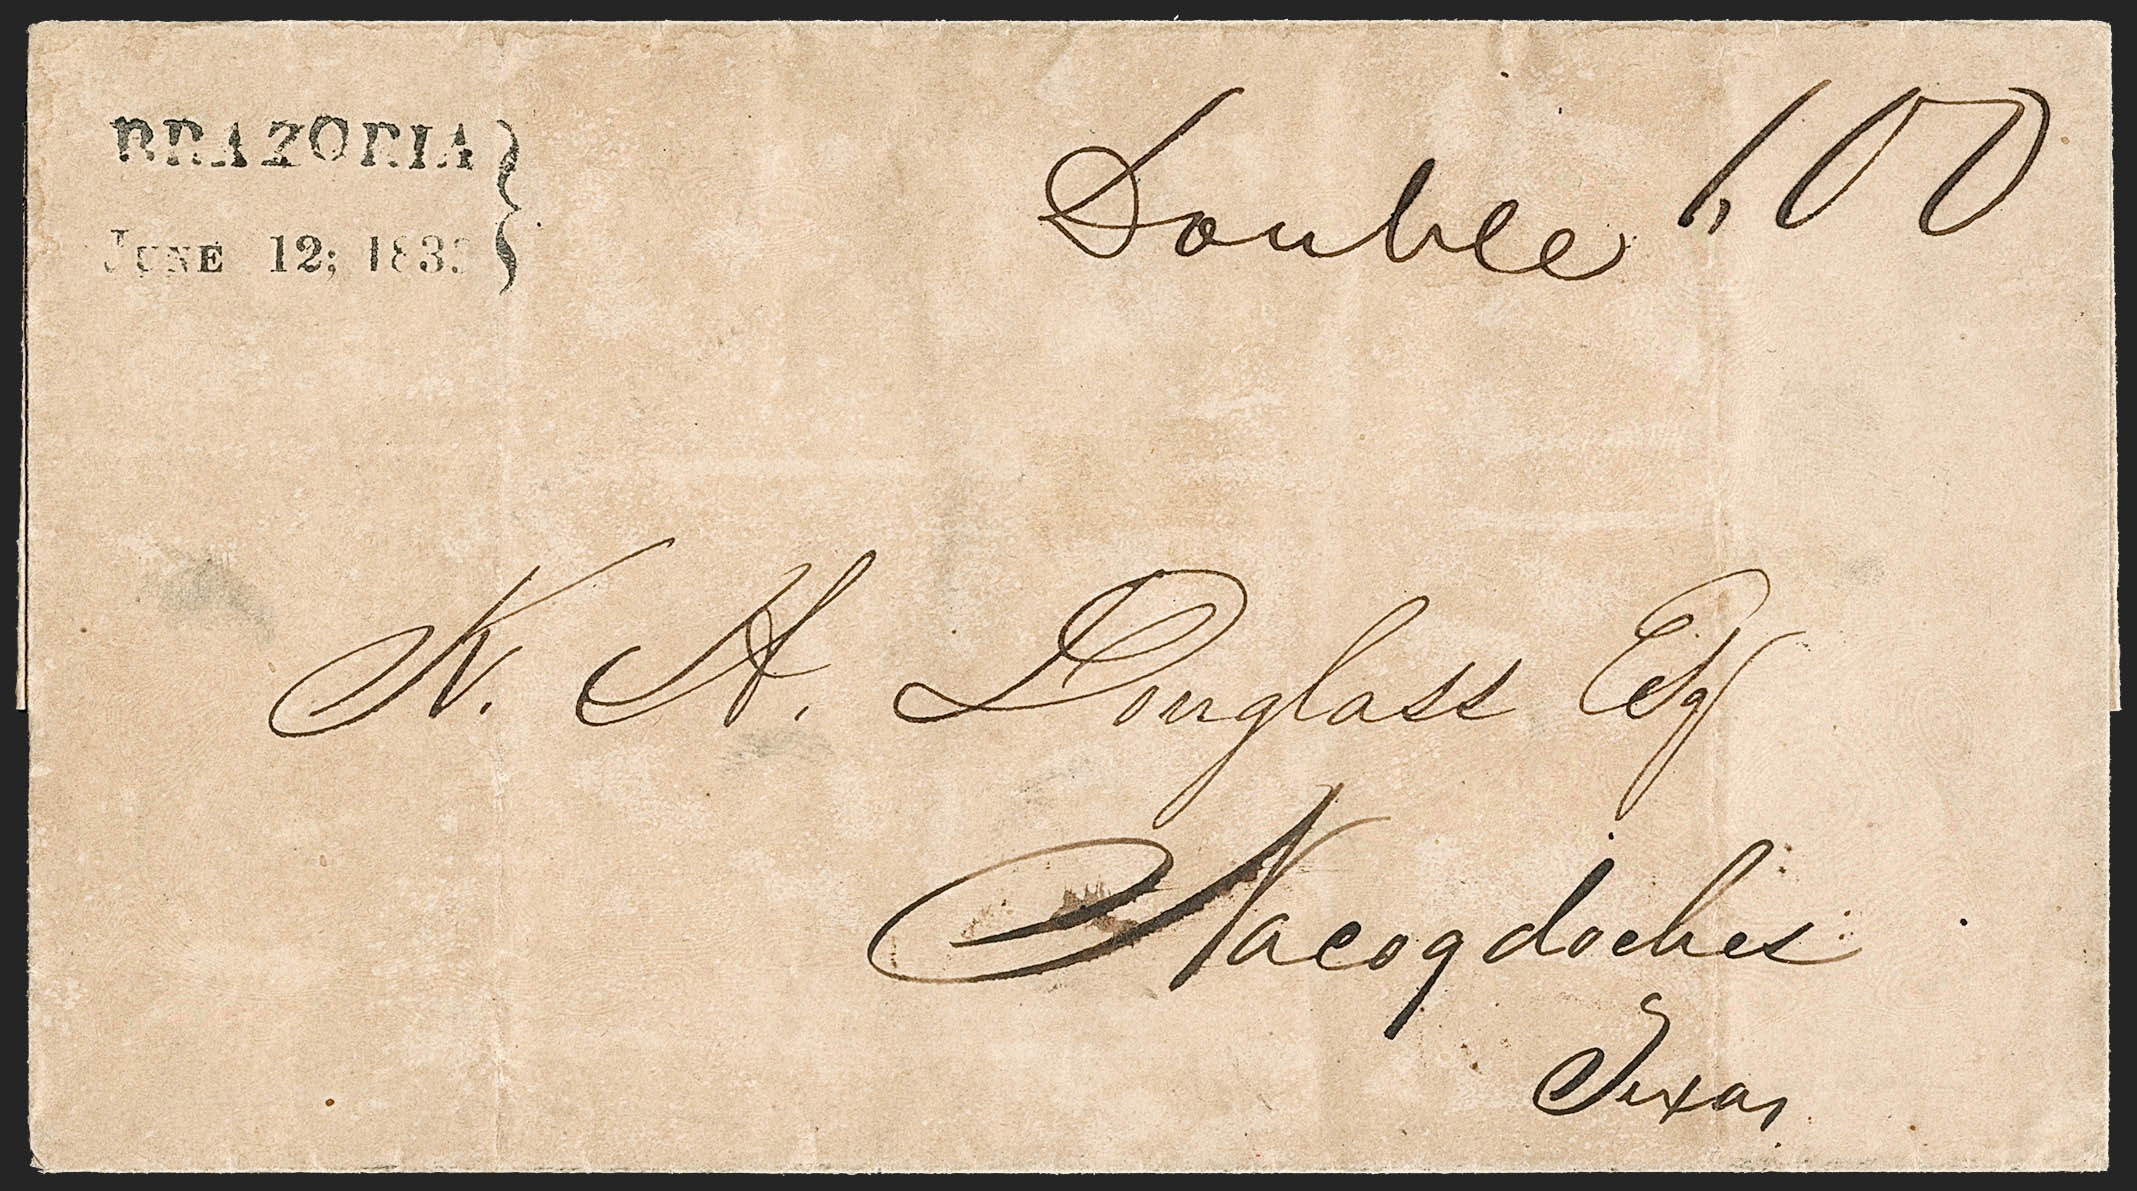 BRAZORIA
JUNE 12;
Double 1,00
K. H. Douglass Esq
Nacogdoches
Texas